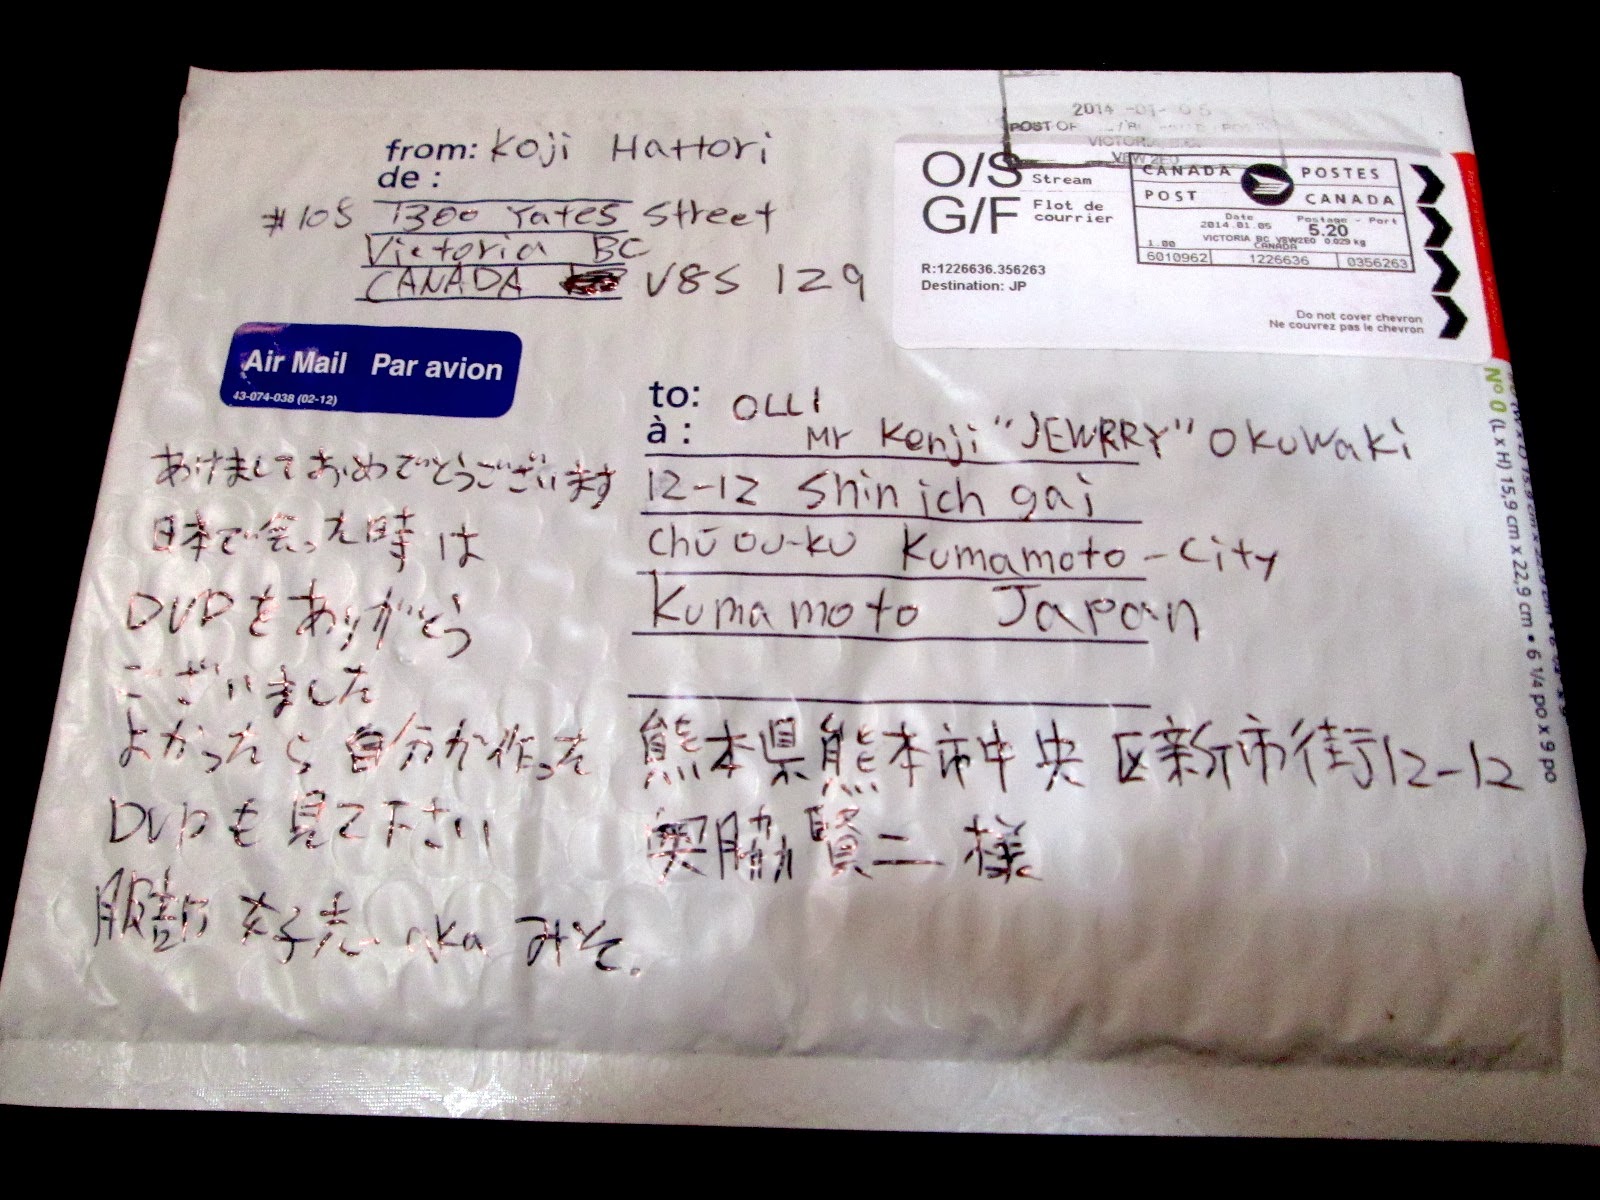 2014 -01- 05
POST OF
VICTORIA
V8W 2E0
from: Koji Hattori
de :
#105 1300 Yates Street
Victoria BC
CANADA V8S 1Z9
O/S Stream
G/F Flot de courrier
CANADA POSTES
POST CANADA
Date Postage - Port
2014.01.05 5.20
VICTORIA BC V8W2E0 0.029 kg
1.00 CANADA
6010962 1226636 0356263
R:1226636.356263
Destination: JP
Do not cover chevron
Ne couvrez pas le chevron
Air Mail Par avion
43-074-038 (02-12)
to: OLLI
à : Mr Kenji "JEWRRY" Okuwaki
12-12 Shin ich gai
Chūou-ku Kumamoto-City
Kumamoto Japan
熊本県熊本市中央区新市街12-12
奥脇賢二 様
あけましておめでとうございます
日本で会った時は
DVDをありがとう
ございました
よかったら自分が作った
DVDも見て下さい
服部 好志 aka みそ.
Nº 0 (L x H) 15,9 cm x 22,9 cm • 6 1/4 po x 9 po